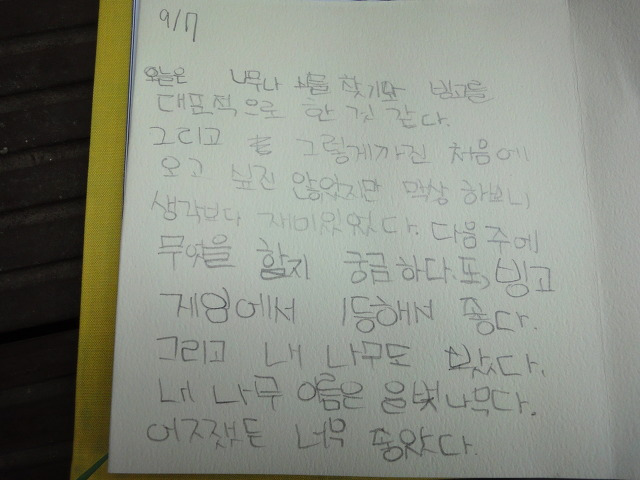 9/17
오늘은 나무나 새를 찾기와 빙고를
대표적으로 한 것 같다.
그리고 또 그렇게까진 처음에
오고 싶진 않았지만 막상 하보니
생각보다 재미있었다. 다음 주에
무엇을 할지 궁금하다. 또, 빙고
게임에서 1등해서 좋다.
그리고 내 나무도 봤다.
내 나무 이름은 음벚나무다.
어쨌든 너무 좋았다.